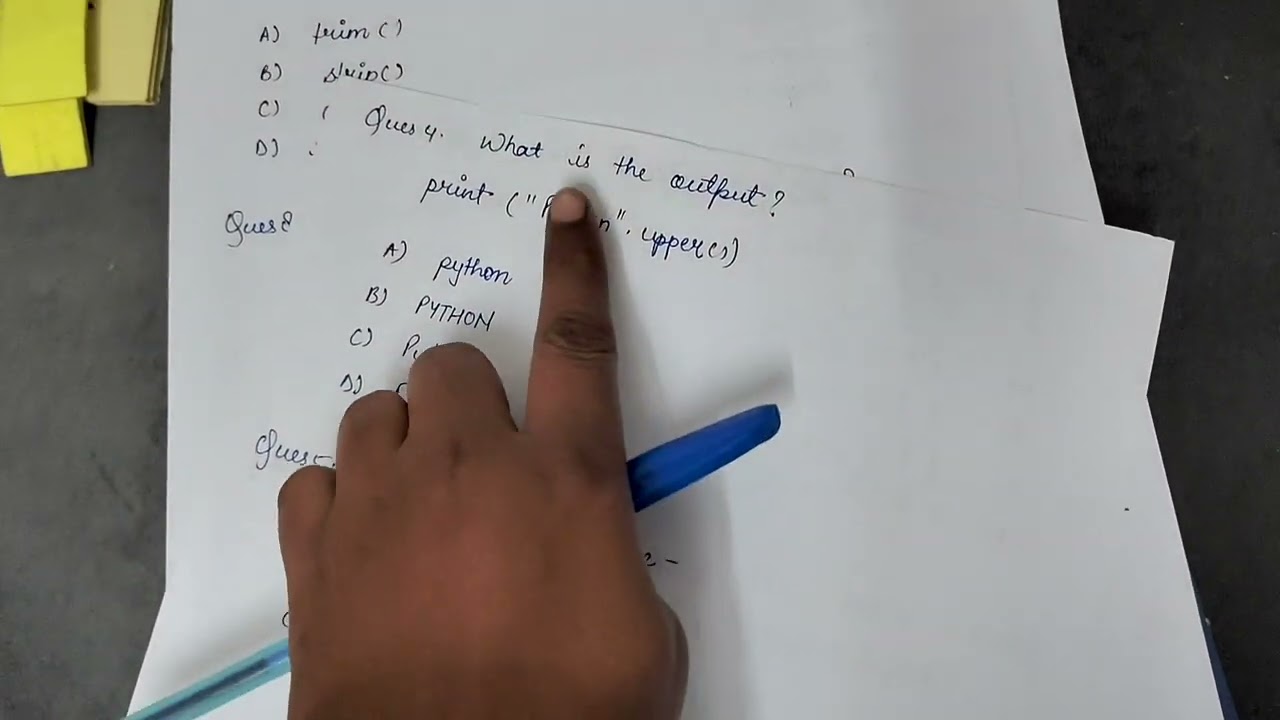 A) trim()
B) strip()
C) (
D)
Ques 4. What is the output?
print (" n". upper())
A) python
B) PYTHON
C)
D)
Ques
Ques